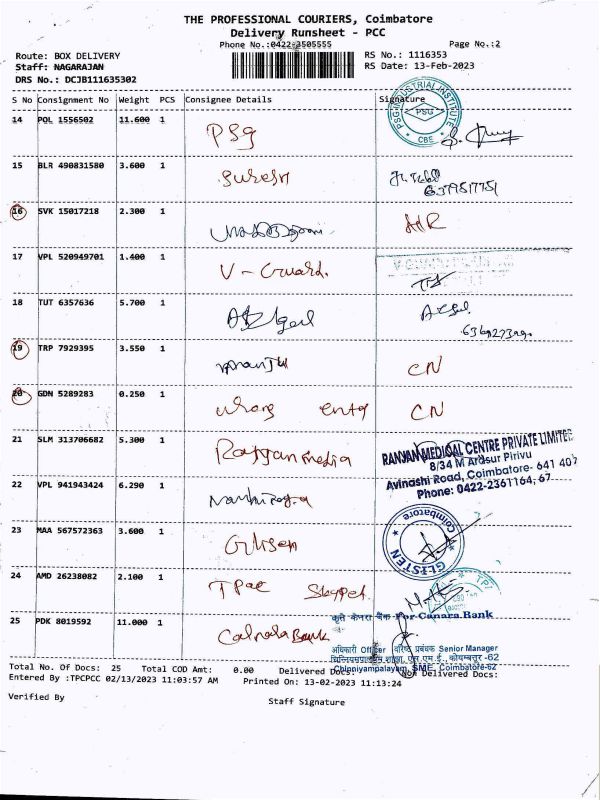 THE PROFESSIONAL COURIERS, Coimbatore
Delivery Runsheet - PCC
Phone No.:0422-3505555 Page No.:2
Route: BOX DELIVERY RS No.: 1116353
Staff: NAGARAJAN RS Date: 13-Feb-2023
DRS No.: DCJB111635302
S No Consignment No Weight PCS Consignee Details Signature
14 POL 1556502 11.600 1 PSG
PSG INDUSTRIAL INSTITUTE PSG CBE
15 BLR 490831580 3.600 1 Suresh
16 SVK 15017218 2.300 1
17 VPL 520949701 1.400 1 V-Guard.
18 TUT 6357636 5.700 1
19 TRP 7929395 3.550 1 CN
20 GDN 5289283 0.250 1 wrong entry CN
21 SLM 313706682 5.300 1
RANJAN MEDICAL CENTRE PRIVATE LIMITED
8/34 M Arasur Pirivu
Avinashi Road, Coimbatore- 641 407
Phone: 0422-2361164, 67
22 VPL 941943424 6.290 1
23 MAA 567572363 3.600 1
Coimbatore GLISTEN
24 AMD 26238082 2.100 1
25 PDK 8019592 11.000 1 Bank
कृते केनरा बैंक For Canara Bank
अधिकारी Officer वरिष्ठ प्रबंधक Senior Manager
Chinniyampalayam, SME, Coimbatore-62
Total No. Of Docs: 25 Total COD Amt: 0.00 Delivered Docs: Non Delivered Docs:
Entered By :TPCPCC 02/13/2023 11:03:57 AM Printed On: 13-02-2023 11:13:24
Verified By Staff Signature